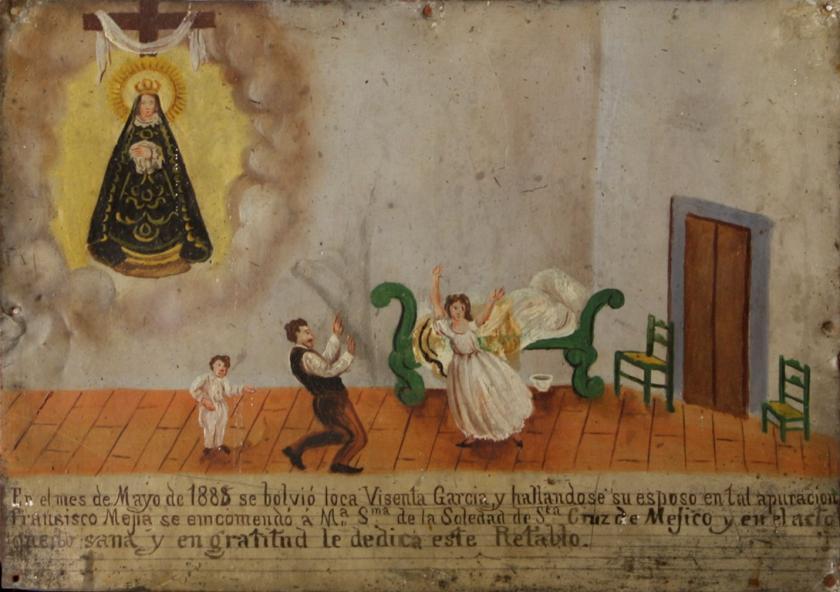 En el mes de Mayo de 1888 se bolvió loca Visenta Garcia, y hallandose su esposo en tal apuracion
Fransisco Mejia se emcomendó á Mª Smª de la Soledad de Sta Cruz de Mejico y en el acto
quedo sana, y en gratitud le dedica este Retablo.